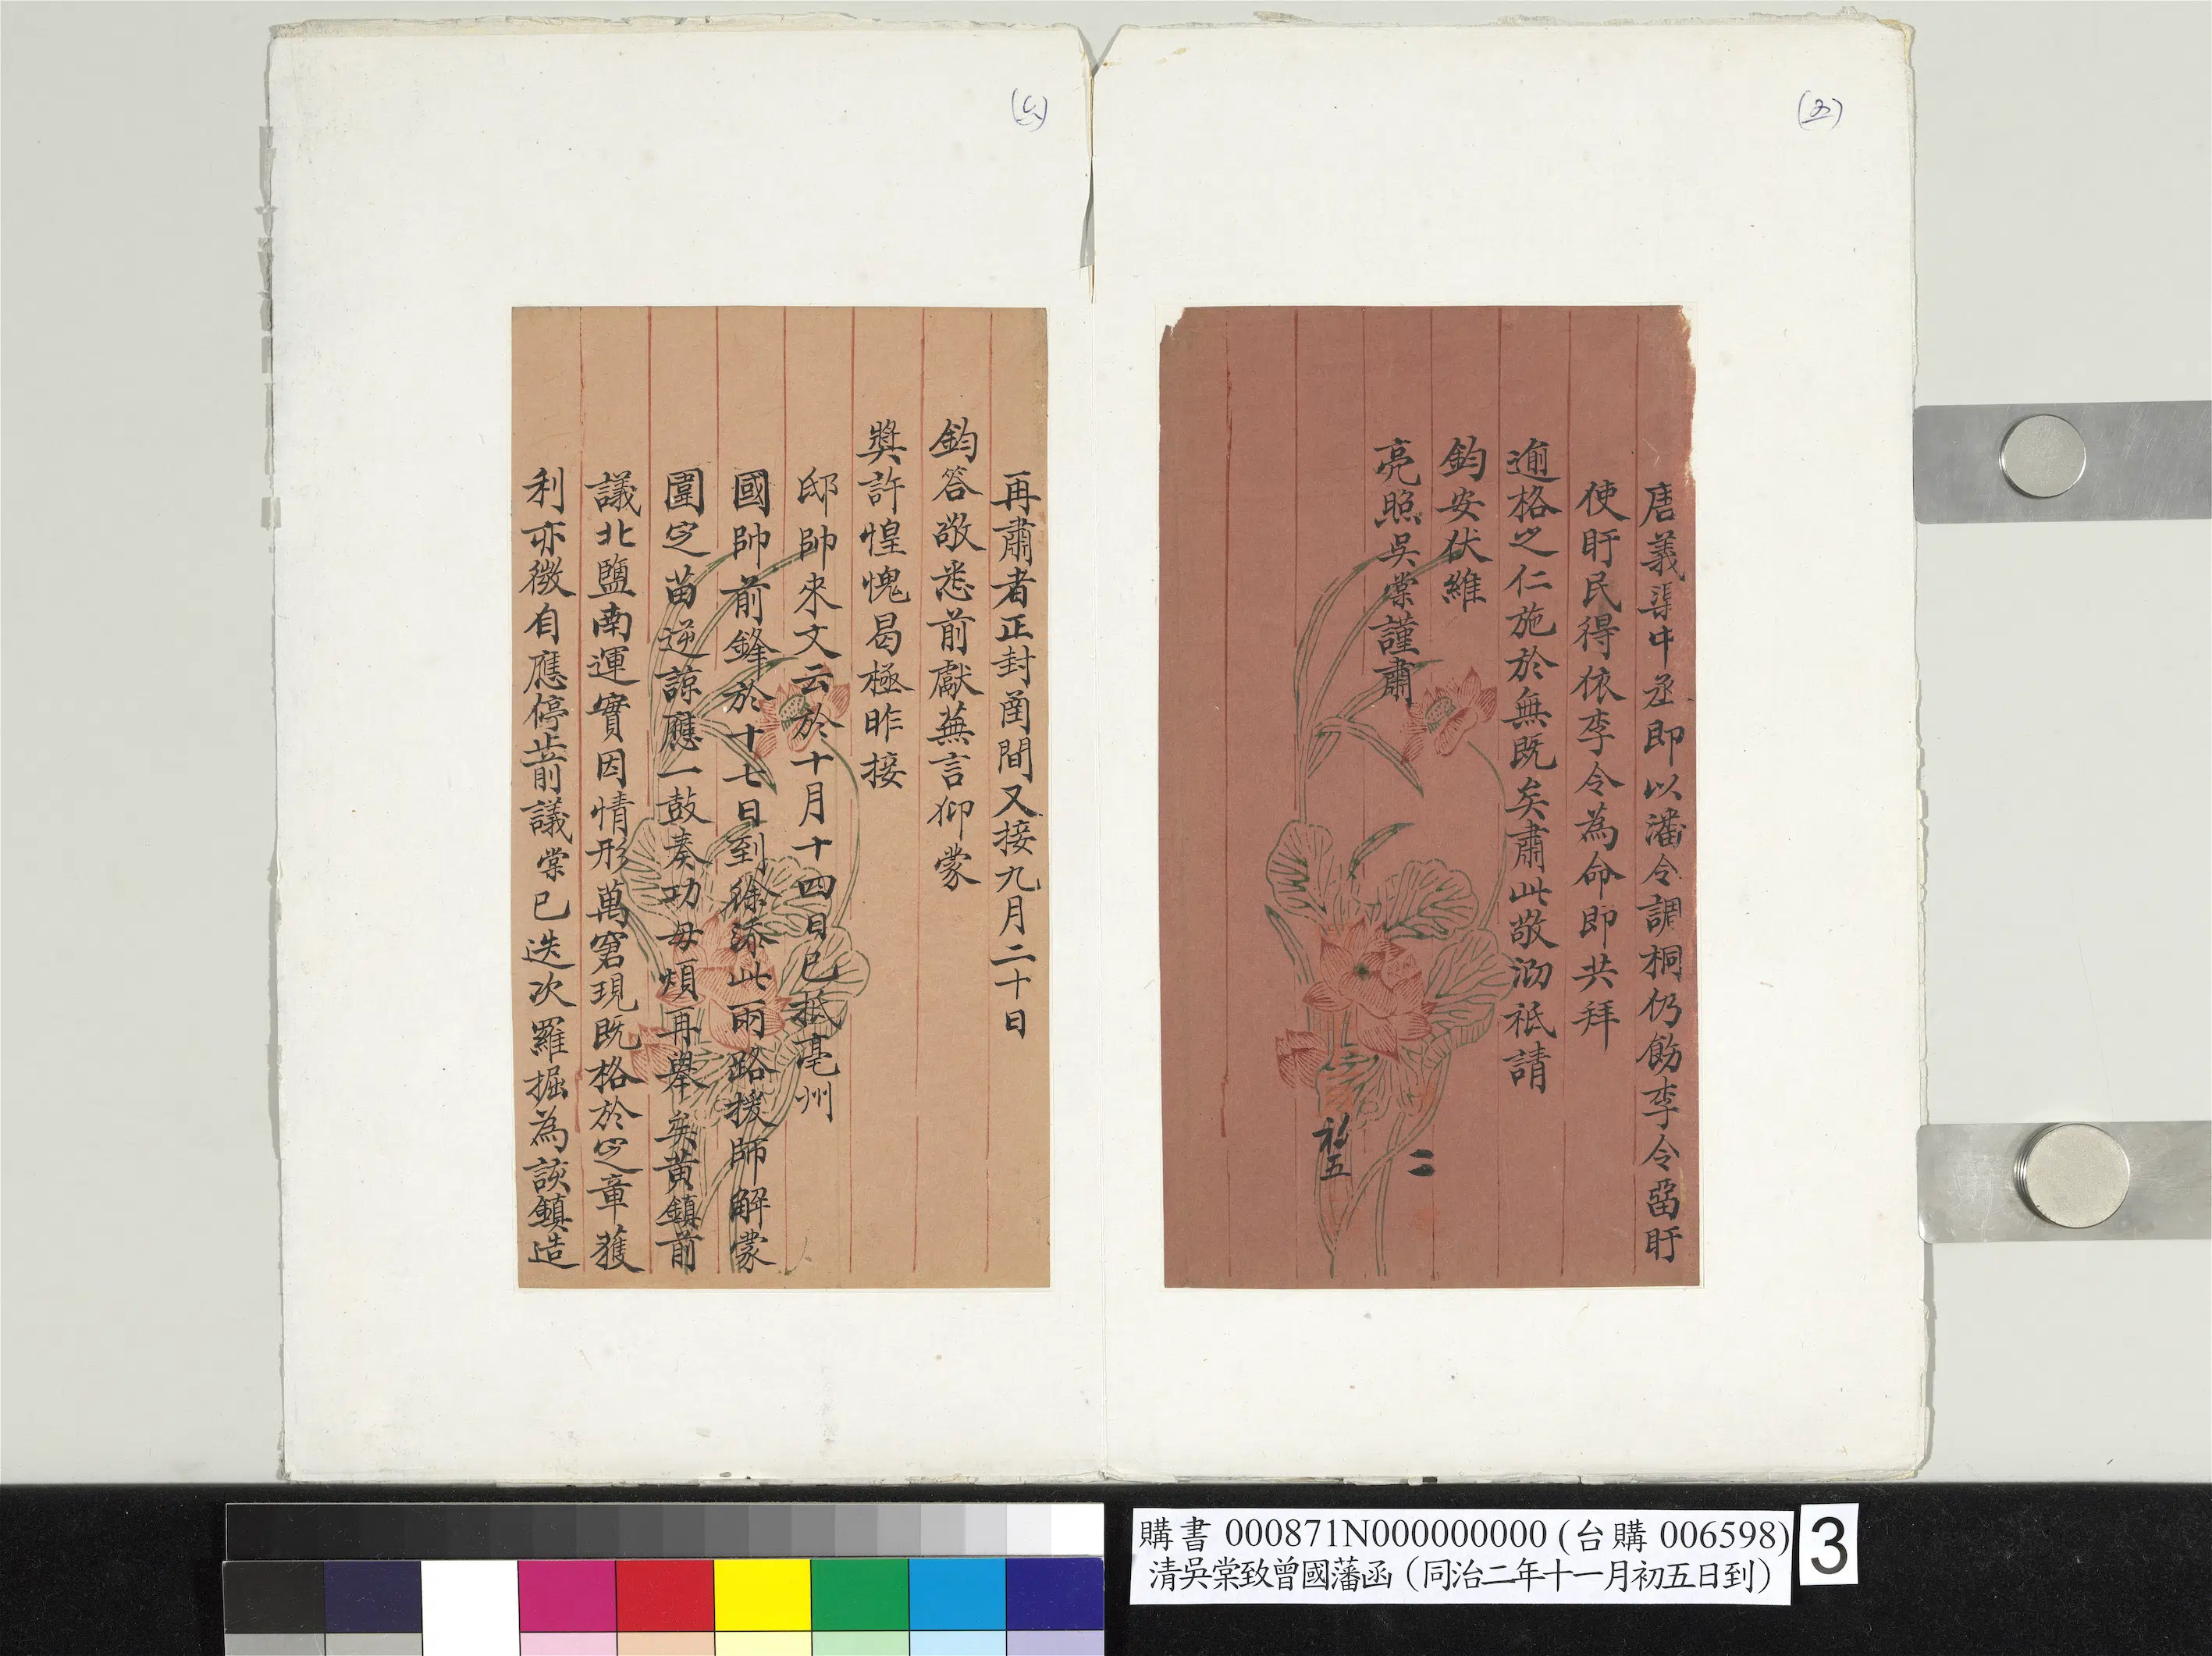 (五)
唐義渠中丞即以潘令調桐仍飭李令留盱
使盱民得依李令為命即共拜
逾格之仁施於無既矣肅此敬泐祗請
鈞安伏維
亮照吳棠謹肅
二
初五
(六)
再肅者正封函間又接九月二十日
鈞答敬悉前獻蕪言仰蒙
獎許惶愧曷極昨接
邸帥來文云於十月十四日已抵亳州
國帥前鋒於十七日到徐添此兩路援師解蒙
圍定苗逆諒應一鼓奏功毋煩再舉矣黃鎮前
議北鹽南運實因情形萬窘現既格於定章獲
利亦微自應停止前議棠已迭次羅掘為該鎮造
購書 000871N000000000 (台購 006598)
清吳棠致曾國藩函（同治二年十一月初五日到）
3